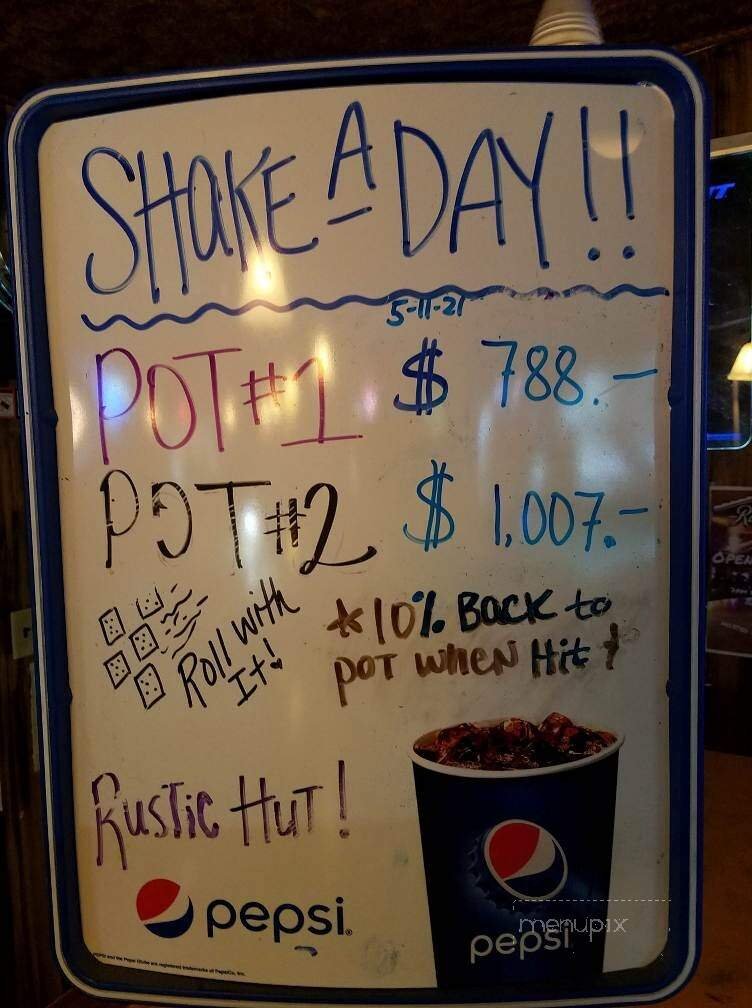 SHAKE A DAY!!
5-11-21
POT #1 $ 788.-
POT #2 $ 1,007.-
Roll with
It!
* 10% BACK to
POT WHEN Hit!
RUSTIC HUT!
pepsi
pepsi
menupix
OPEN